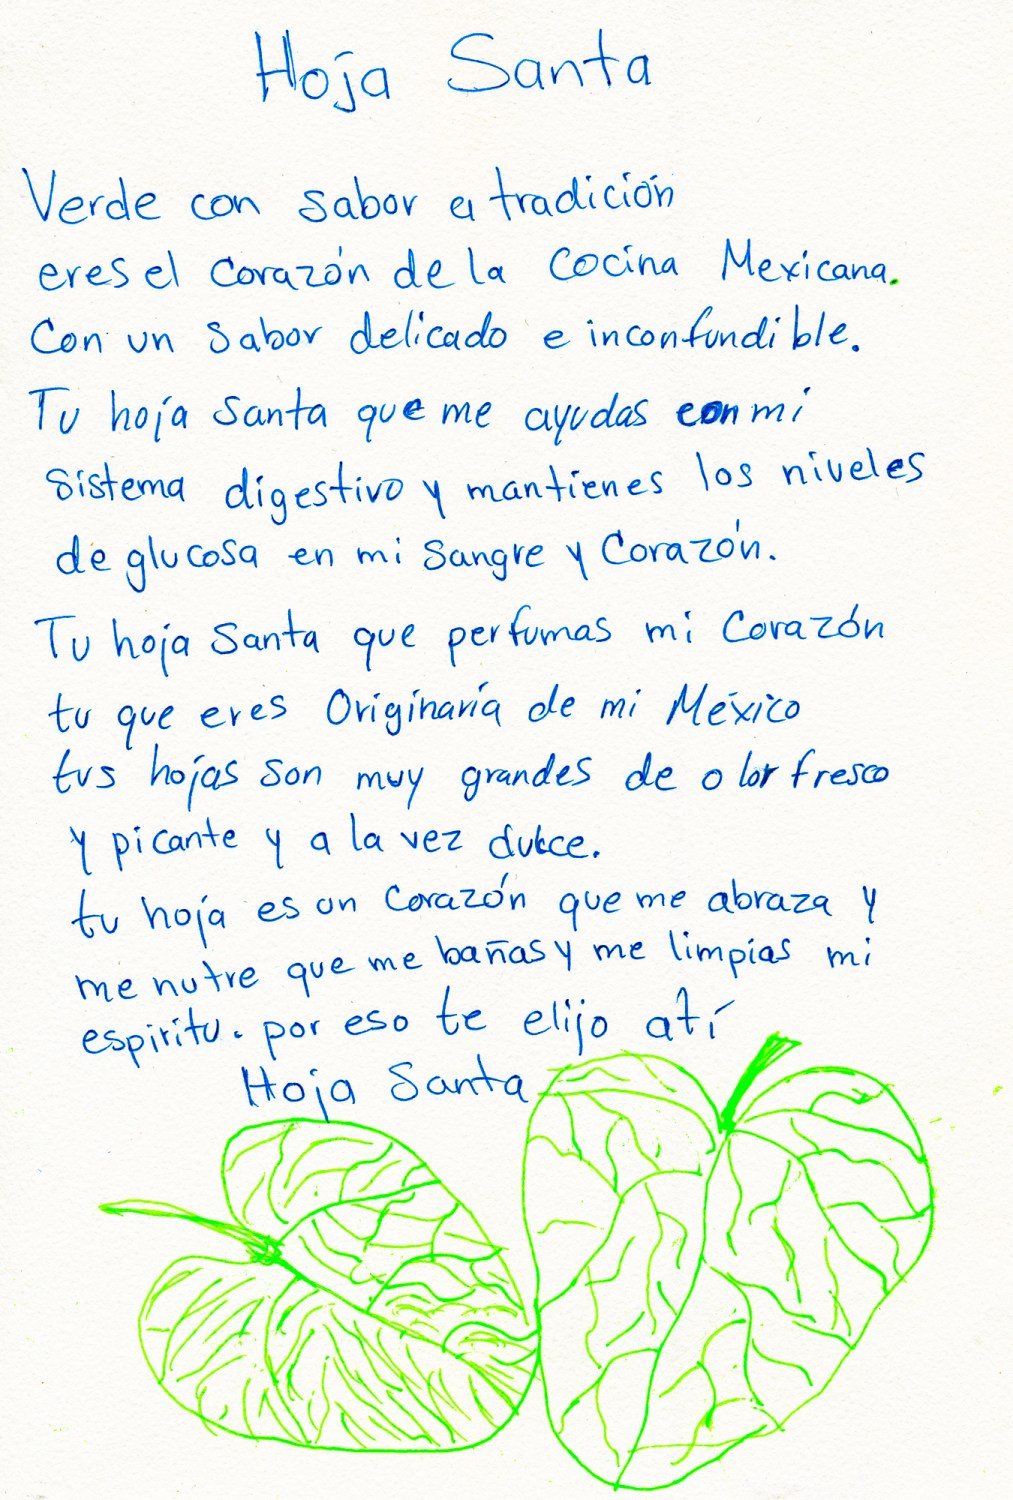 Hoja Santa
Verde con sabor a tradición
eres el Corazón de la Cocina Mexicana.
Con un Sabor delicado e inconfundible.
Tu hoja Santa que me ayudas con mi
Sistema digestivo y mantienes los niveles
de glucosa en mi Sangre y Corazón.
Tu hoja Santa que perfumas mi Corazón
tu que eres Originaría de mi México
tus hojas Son muy grandes de olor fresco
y picante y a la vez dulce.
tu hoja es un Corazón que me abraza y
me nutre que me bañas y me limpias mi
espiritu. por eso te elijo atí
Hoja Santa